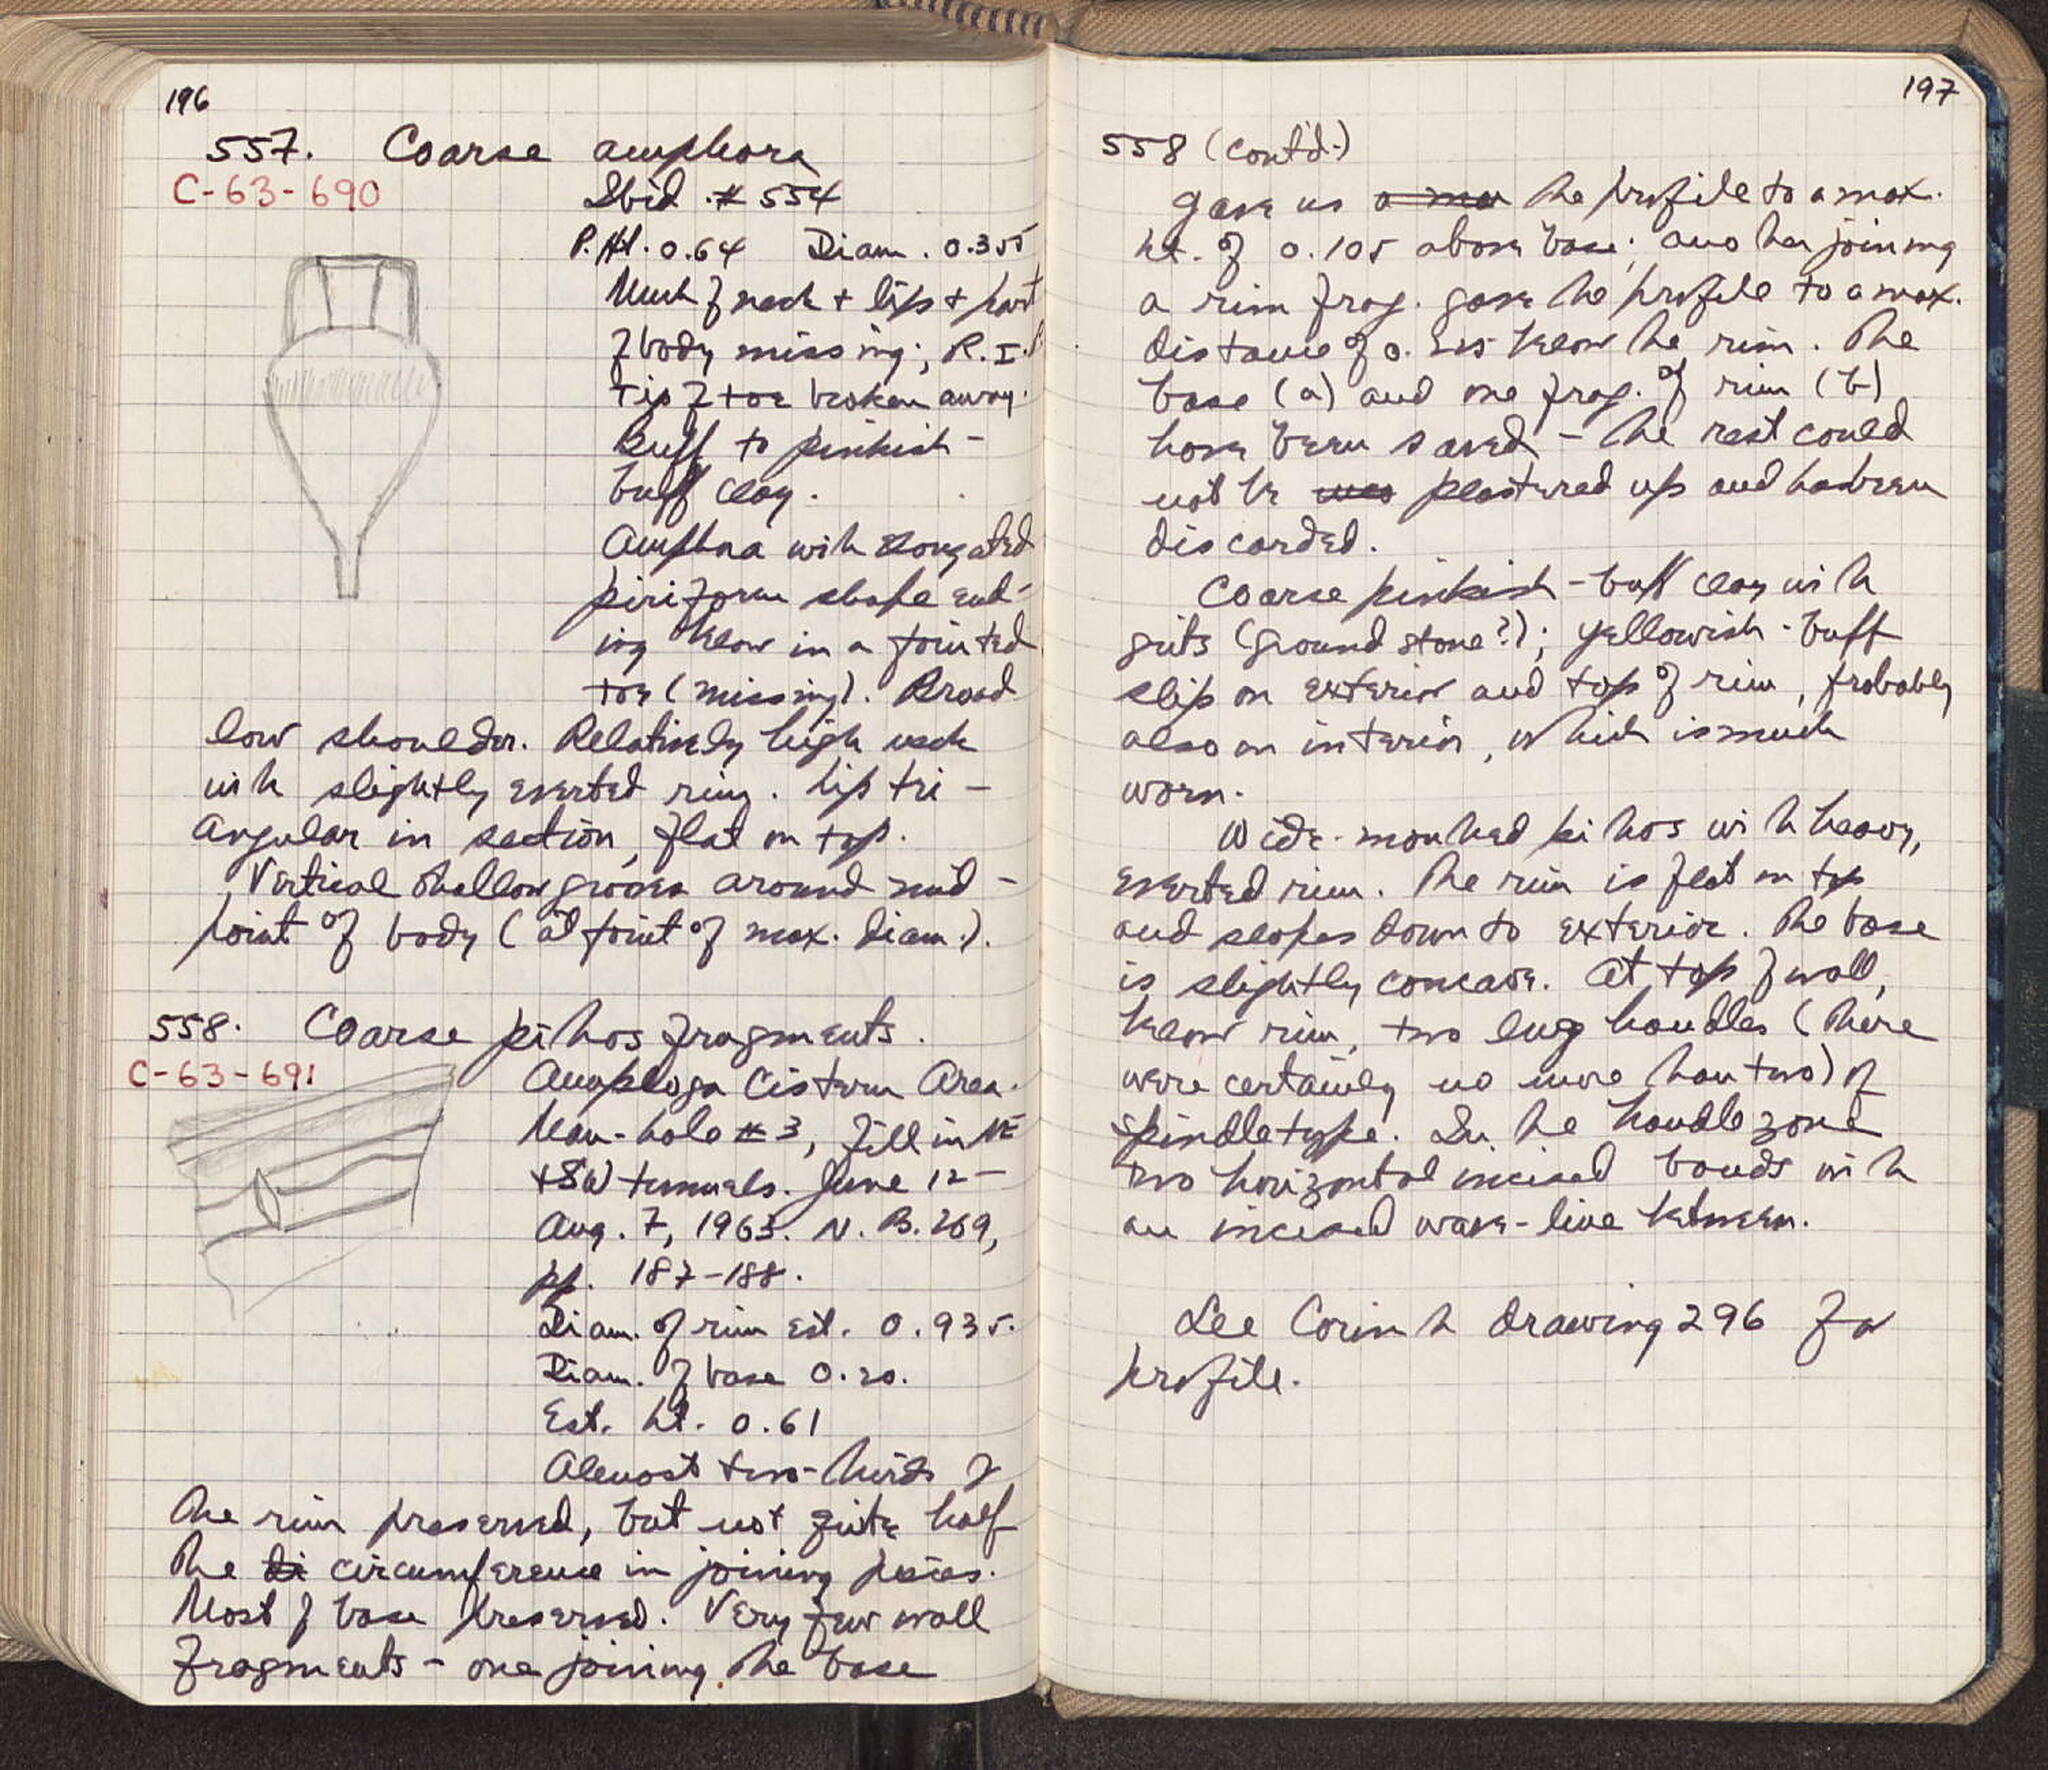 196
557. Coarse amphora
C-63-690
Ibid. # 554
P. Ht. 0.64 Diam. 0.355
Much of neck + lip + part
of body missing; R.I.P.
Tip of toe broken away.
Buff to pinkish-
buff clay.
Amphora with elongated
piriform shape end-
ing below in a pointed
toe (missing). Broad
low shoulder. Relatively high neck
with slightly everted ring. Lip tri-
angular in section, flat on top.
Vertical shallow grooves around mid-
point of body (at point of max. diam.).
558. Coarse pithos fragments.
C-63-691
Anaploga Cistern Area.
Man-hole # 3, fill in NE
+ SW tunnels. June 12-
Aug. 7, 1963. N. B. 269,
pp. 187-188.
Diam. of rim est. 0.935.
Diam. of base 0.20.
Est. ht. 0.61
Almost two-thirds of
the rim preserved, but not quite half
the di circumference in joining pieces.
Most of base preserved. Very few wall
fragments - one joining the base
197
558 (cont'd.)
gave us a max the profile to a max.
ht. of 0.105 above base; another joining
a rim frag. gave the profile to a max.
distance of 0. below the rim. The
base (a) and one frag. of rim (b)
have been saved - the rest could
not be was plastered up and has been
discarded.
Coarse pinkish-buff clay with
grits (ground stone?); yellowish-buff
slip on exterior and top of rim, probably
also on interior, which is much
worn.
Wide-mouthed pithos with heavy,
everted rim. The rim is flat on top
and slopes down to exterior. The base
is slightly concave. At top of wall,
below rim, two lug handles (there
were certainly no more than two) of
spindle type. In the handle zone
two horizontal incised bands with
an incised wave-line between.
See Corinth drawing 296 for
profile.